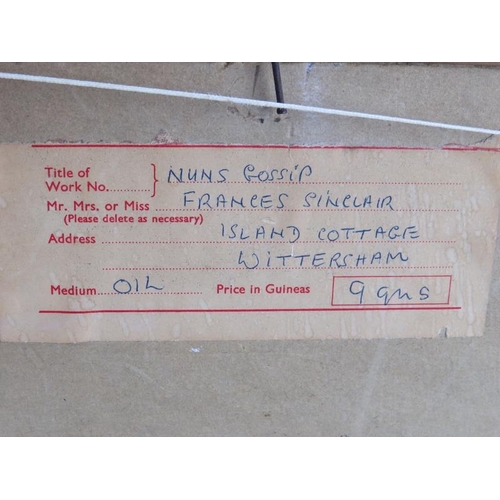 Title of } NUNS GOSSIP
Work No.
Mr. Mrs. or Miss FRANCES SINCLAIR
(Please delete as necessary)
Address ISLAND COTTAGE
WITTERSHAM
Medium OIL Price in Guineas 9 gns